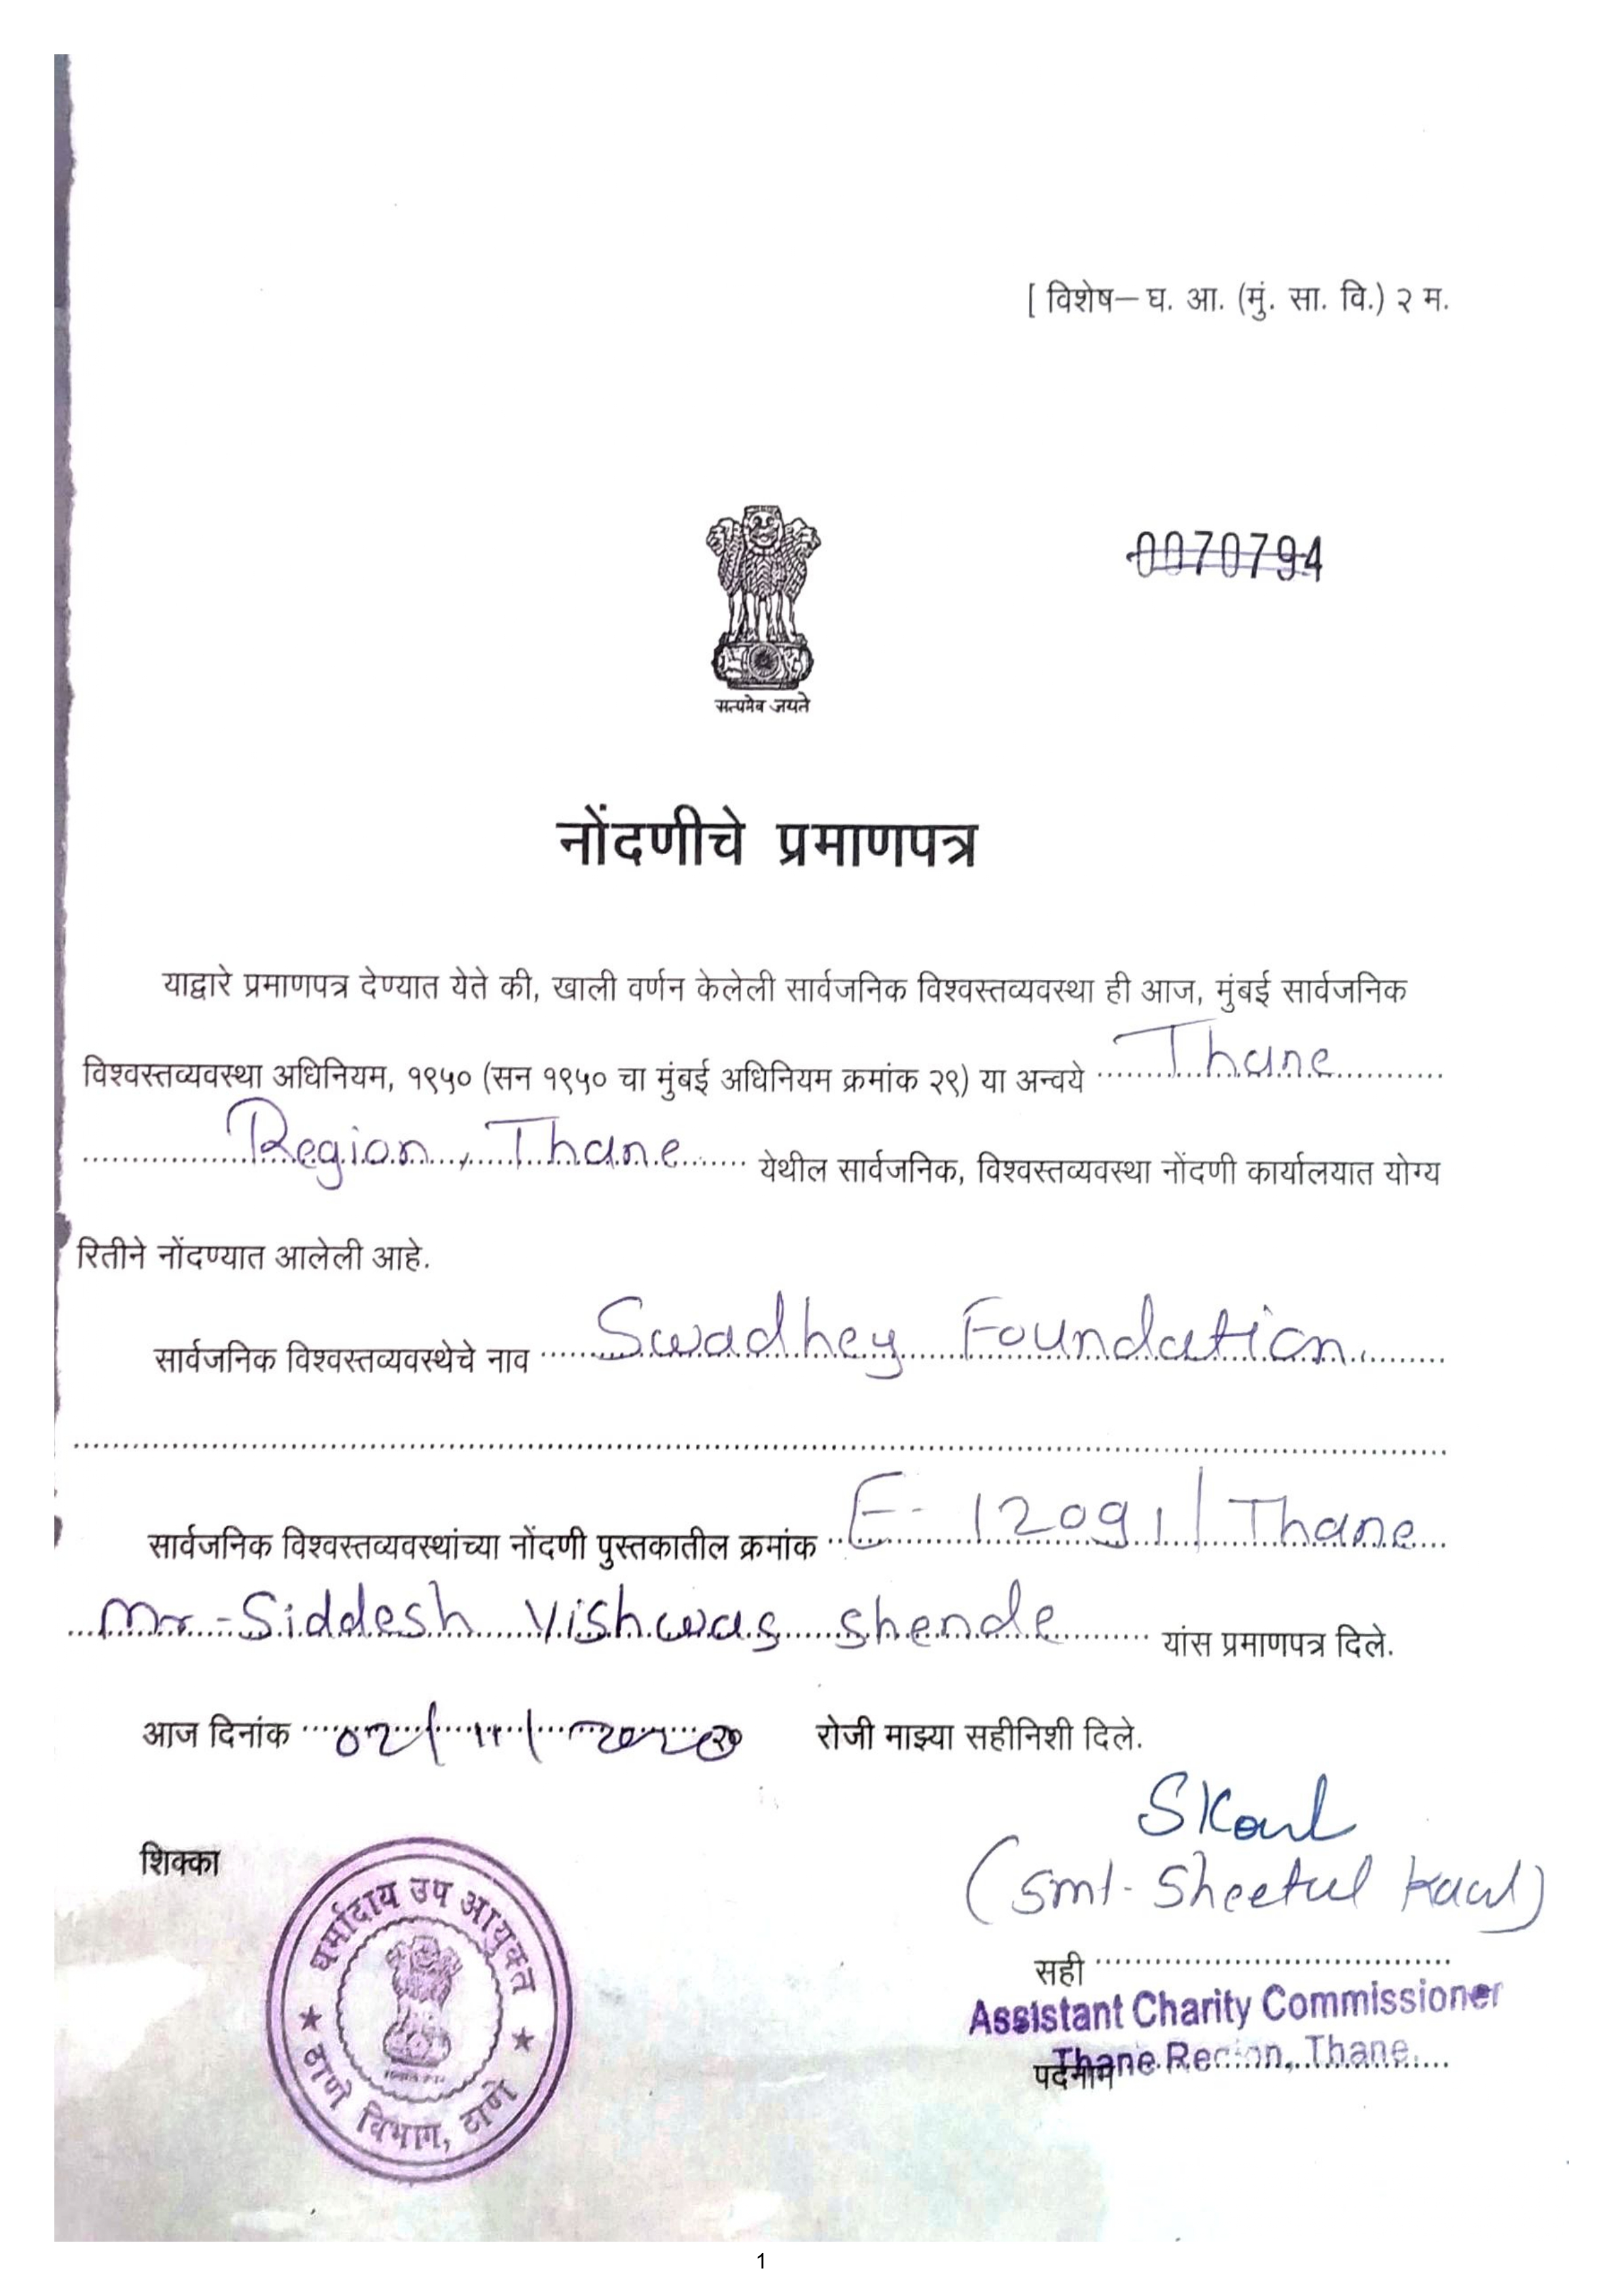 [ विशेष– घ. आ. (मुं. सा. वि.) २ म.
0070794
सत्यमेव जयते
नोंदणीचे प्रमाणपत्र
याद्वारे प्रमाणपत्र देण्यात येते की, खाली वर्णन केलेली सार्वजनिक विश्वस्तव्यवस्था ही आज, मुंबई सार्वजनिक
विश्वस्तव्यवस्था अधिनियम, १९५० (सन १९५० चा मुंबई अधिनियम क्रमांक २९) या अन्वये Thane
Region, Thane येथील सार्वजनिक, विश्वस्तव्यवस्था नोंदणी कार्यालयात योग्य
रितीने नोंदण्यात आलेली आहे.
सार्वजनिक विश्वस्तव्यवस्थेचे नाव Swadhey Foundation
सार्वजनिक विश्वस्तव्यवस्थांच्या नोंदणी पुस्तकातील क्रमांक E- 12091/Thane
Mr-Siddesh Vishwas Shende यांस प्रमाणपत्र दिले.
आज दिनांक 02/11/ रोजी माझ्या सहीनिशी दिले.
SKaul
(Smt- Sheetul Kaul)
शिक्का
धर्मादाय उप आयुक्त
ठाणे विभाग, ठाणे
सही
Assistant Charity Commissioner
Thane Region, Thane.
पदनाम
1